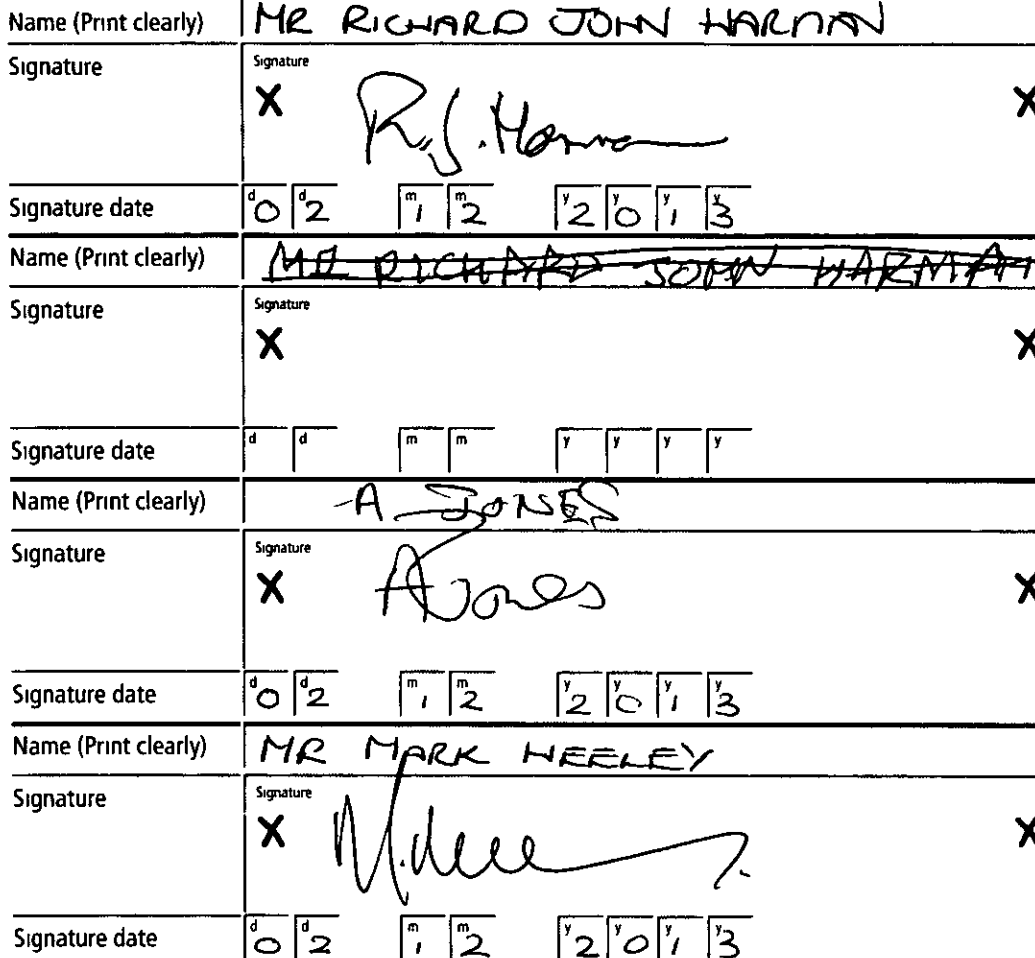 Name (Print clearly) MR RICHARD JOHN HARMAN
Signature Signature
X R.J. Harman X
Signature date d0 d2 m1 m2 y2 y0 y1 y3
Name (Print clearly) MR RICHARD JOHN HARMAN
Signature Signature
X X
Signature date d d m m y y y y
Name (Print clearly) A JONES
Signature Signature
X A Jones X
Signature date d0 d2 m1 m2 y2 y0 y1 y3
Name (Print clearly) MR MARK HEELEY
Signature Signature
X X
Signature date d0 d2 m1 m2 y2 y0 y1 y3